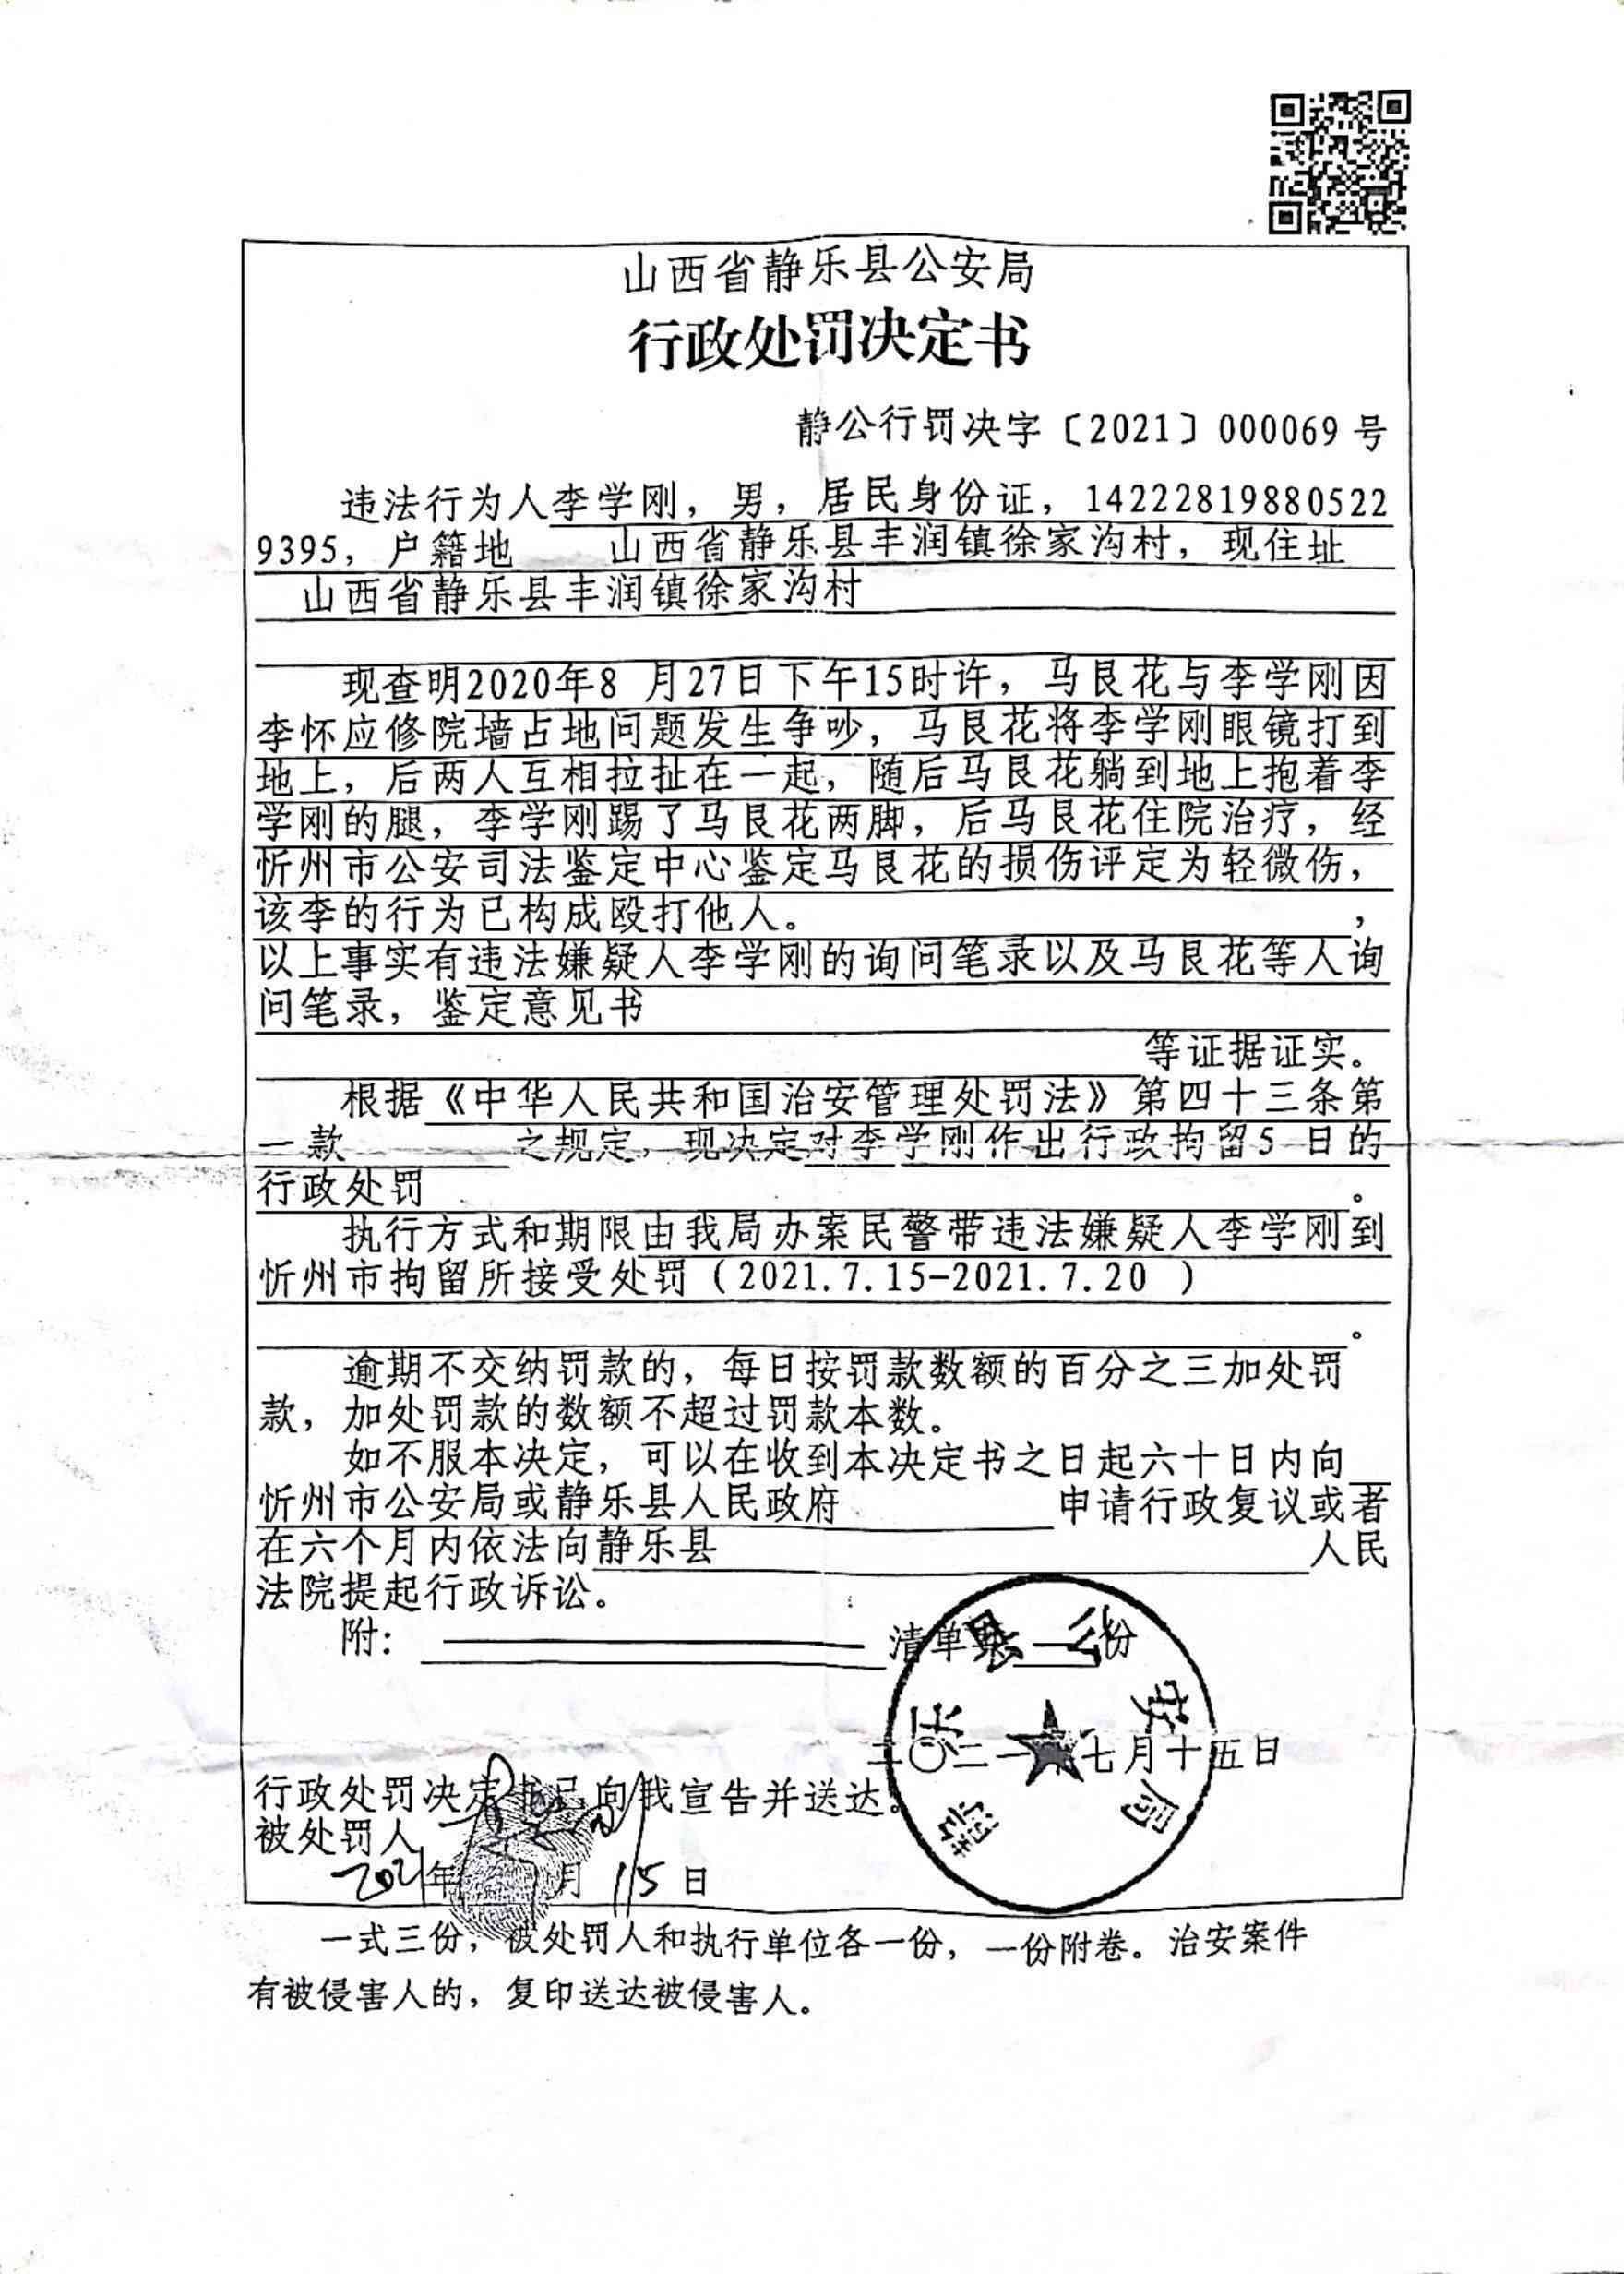 山西省静乐县公安局
行政处罚决定书
静公行罚决字〔2021〕000069 号
违法行为人李学刚，男，居民身份证，14222819880522
9395，户籍地 山西省静乐县丰润镇徐家沟村，现住址
山西省静乐县丰润镇徐家沟村
现查明2020年8 月27日下午15时许，马艮花与李学刚因
李怀应修院墙占地问题发生争吵，马艮花将李学刚眼镜打到
地上，后两人互相拉扯在一起，随后马艮花躺到地上抱着李
学刚的腿，李学刚踢了马艮花两脚，后马艮花住院治疗，经
忻州市公安司法鉴定中心鉴定马艮花的损伤评定为轻微伤，
该李的行为已构成殴打他人。 ，
以上事实有违法嫌疑人李学刚的询问笔录以及马艮花等人询
问笔录，鉴定意见书
等证据证实。
根据《中华人民共和国治安管理处罚法》第四十三条第
一款 之规定，现决定对李学刚作出行政拘留5 日的
行政处罚 。
执行方式和期限由我局办案民警带违法嫌疑人李学刚到
忻州市拘留所接受处罚（2021.7.15-2021.7.20 ）
。
逾期不交纳罚款的，每日按罚款数额的百分之三加处罚
款，加处罚款的数额不超过罚款本数。
如不服本决定，可以在收到本决定书之日起六十日内向
忻州市公安局或静乐县人民政府 申请行政复议或者
在六个月内依法向静乐县 人民
法院提起行政诉讼。
附： 清单共 份
静乐县公安局
二〇二一年七月十五日
行政处罚决定书已向我宣告并送达。
被处罚人
2021年 月 15 日
一式三份，被处罚人和执行单位各一份，一份附卷。治安案件
有被侵害人的，复印送达被侵害人。